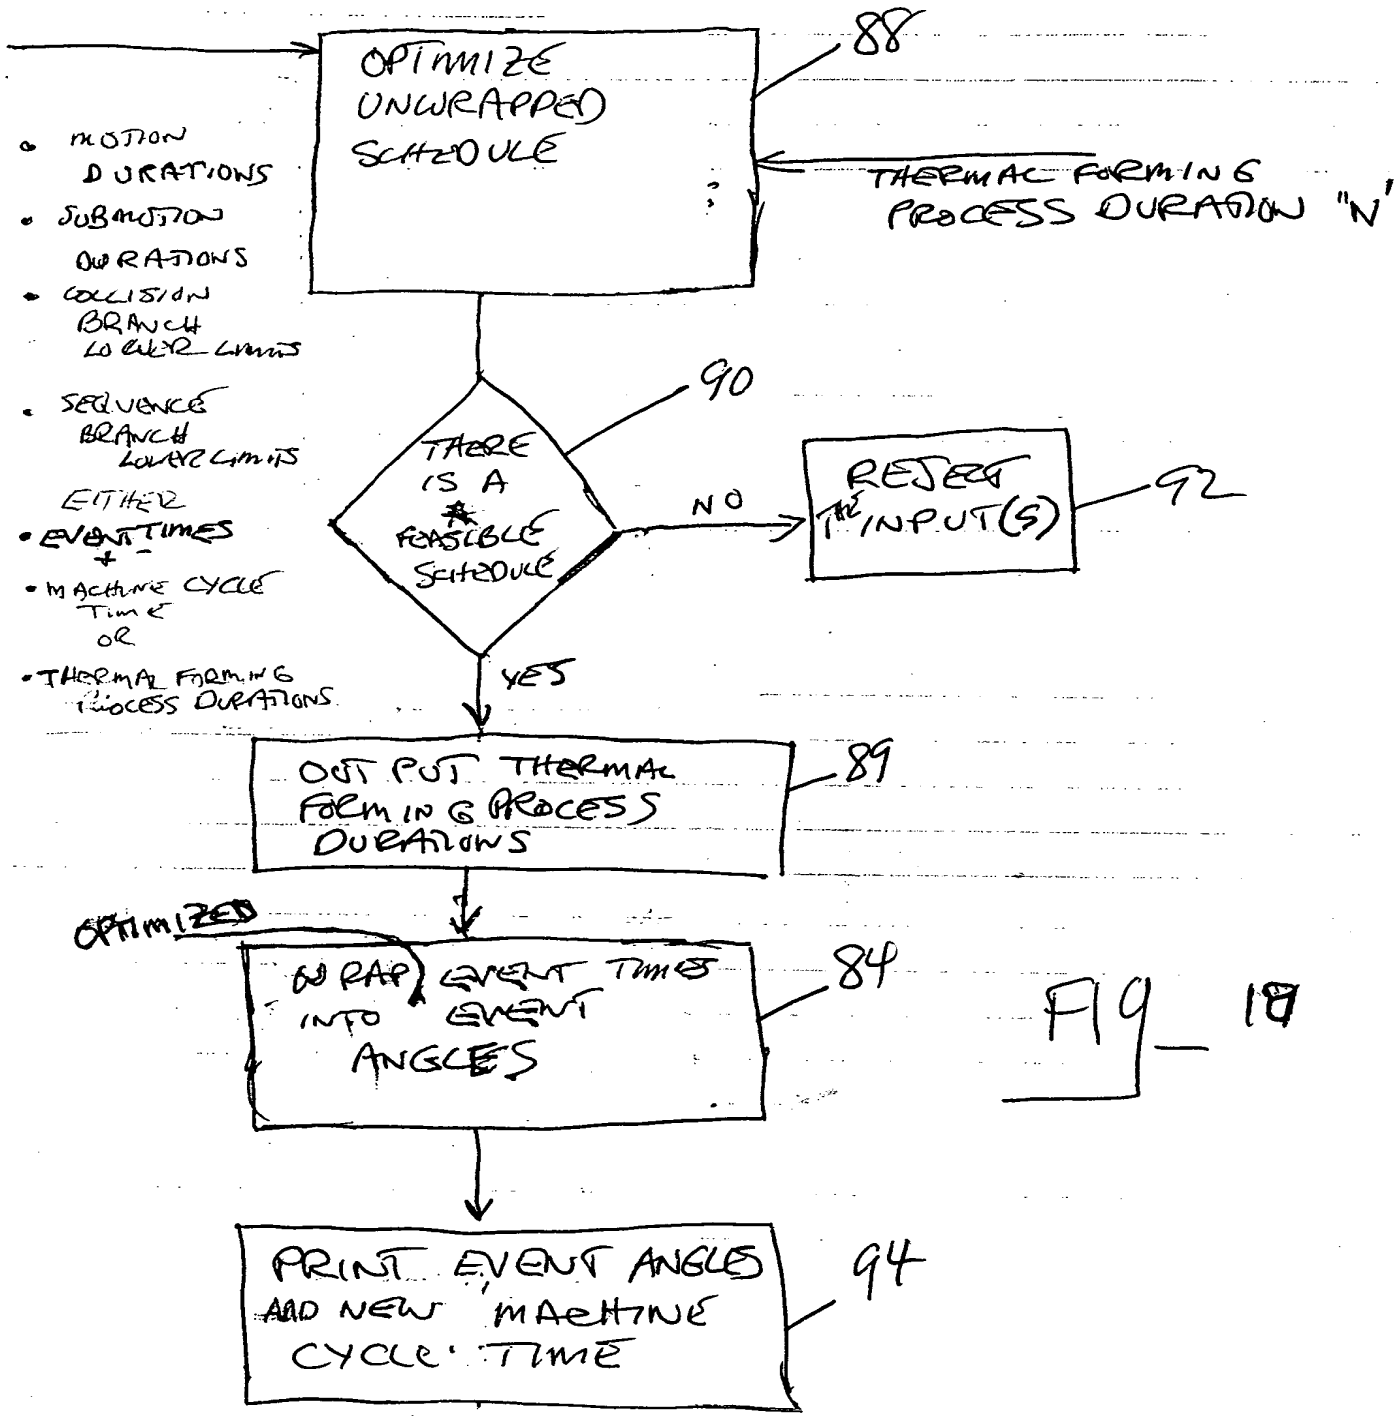 OPTIMIZE
UNWRAPPED
SCHEDULE
88
THERMAL FORMING
PROCESS DURATION "N'
• MOTION
DURATIONS
• SUBMOTION
DURATIONS
• COLLISION
BRANCH
LOWER LIMITS
• SEQUENCE
BRANCH
LOWER LIMITS
EITHER
• EVENT TIMES
+
• MACHINE CYCLE
TIME
OR
• THERMAL FORMING
PROCESS DURATIONS
90
THERE
IS A
FEASIBLE
SCHEDULE
NO
REJECT
THE INPUT(S)
92
YES
OUTPUT THERMAL
FORMING PROCESS
DURATIONS
89
OPTIMIZED
WRAP EVENT TIMES
INTO EVENT
ANGLES
84
FIG
PRINT EVENT ANGLES
AND NEW MACHINE
CYCLE TIME
94